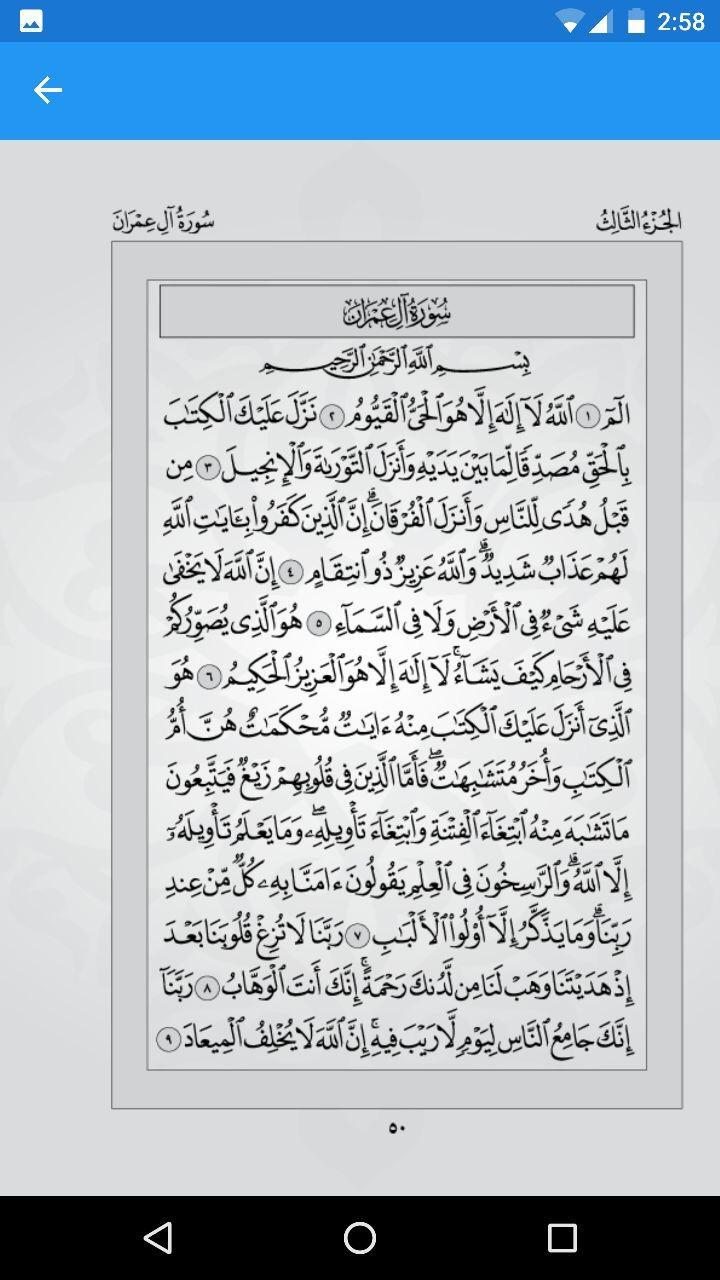 2:58
الجُزْءُ الثَّالِثُ
سُورَةُ آلِ عِمْرَانَ
سُورَةُ آلِ عِمْرَانَ
بِسْمِ اللَّهِ الرَّحْمَٰنِ الرَّحِيمِ
الٓمٓ ١ ٱللَّهُ لَآ إِلَٰهَ إِلَّا هُوَ ٱلْحَىُّ ٱلْقَيُّومُ ٢ نَزَّلَ عَلَيْكَ ٱلْكِتَٰبَ
بِٱلْحَقِّ مُصَدِّقًا لِّمَا بَيْنَ يَدَيْهِ وَأَنزَلَ ٱلتَّوْرَىٰةَ وَٱلْإِنجِيلَ ٣ مِن
قَبْلُ هُدًى لِّلنَّاسِ وَأَنزَلَ ٱلْفُرْقَانَ ۗ إِنَّ ٱلَّذِينَ كَفَرُوا۟ بِـَٔايَٰتِ ٱللَّهِ
لَهُمْ عَذَابٌ شَدِيدٌ ۗ وَٱللَّهُ عَزِيزٌ ذُو ٱنتِقَامٍ ٤ إِنَّ ٱللَّهَ لَا يَخْفَىٰ
عَلَيْهِ شَىْءٌ فِى ٱلْأَرْضِ وَلَا فِى ٱلسَّمَآءِ ٥ هُوَ ٱلَّذِى يُصَوِّرُكُمْ
فِى ٱلْأَرْحَامِ كَيْفَ يَشَآءُ ۚ لَآ إِلَٰهَ إِلَّا هُوَ ٱلْعَزِيزُ ٱلْحَكِيمُ ٦ هُوَ
ٱلَّذِىٓ أَنزَلَ عَلَيْكَ ٱلْكِتَٰبَ مِنْهُ ءَايَٰتٌ مُّحْكَمَٰتٌ هُنَّ أُمُّ
ٱلْكِتَٰبِ وَأُخَرُ مُتَشَٰبِهَٰتٌ ۖ فَأَمَّا ٱلَّذِينَ فِى قُلُوبِهِمْ زَيْغٌ فَيَتَّبِعُونَ
مَا تَشَٰبَهَ مِنْهُ ٱبْتِغَآءَ ٱلْفِتْنَةِ وَٱبْتِغَآءَ تَأْوِيلِهِۦ ۖ وَمَا يَعْلَمُ تَأْوِيلَهُۥٓ
إِلَّا ٱللَّهُ ۗ وَٱلرَّٰسِخُونَ فِى ٱلْعِلْمِ يَقُولُونَ ءَامَنَّا بِهِۦ كُلٌّ مِّنْ عِندِ
رَبِّنَا ۗ وَمَا يَذَّكَّرُ إِلَّآ أُو۟لُوا۟ ٱلْأَلْبَٰبِ ٧ رَبَّنَا لَا تُزِغْ قُلُوبَنَا بَعْدَ
إِذْ هَدَيْتَنَا وَهَبْ لَنَا مِن لَّدُنكَ رَحْمَةً ۚ إِنَّكَ أَنتَ ٱلْوَهَّابُ ٨ رَبَّنَآ
إِنَّكَ جَامِعُ ٱلنَّاسِ لِيَوْمٍ لَّا رَيْبَ فِيهِ ۚ إِنَّ ٱللَّهَ لَا يُخْلِفُ ٱلْمِيعَادَ ٩
٥٠